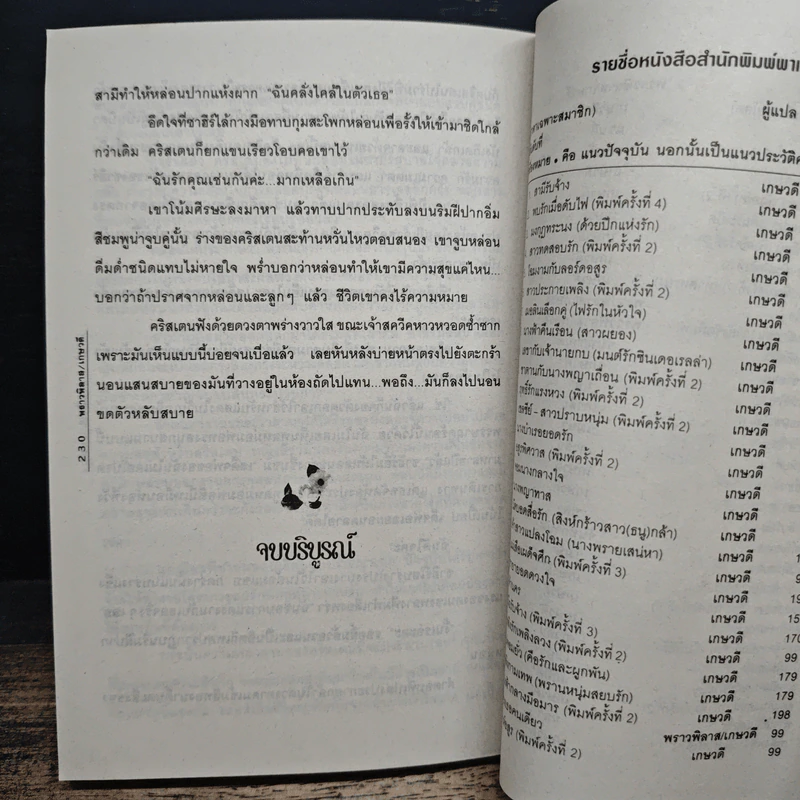 สามีทำให้หล่อนปากแห้งผาก "ฉันคลั่งไคล้ในตัวเธอ"
อึดใจที่ซาฮีร์ไล้กางมือทาบกุมสะโพกหล่อนเพื่อรั้งให้เข้ามาชิดใกล้
กว่าเดิม คริสเตนก็ยกแขนเรียวโอบคอเขาไว้
"ฉันรักคุณเช่นกันค่ะ...มากเหลือเกิน"
เขาโน้มศีรษะลงมาหา แล้วทาบปากประทับลงบนริมฝีปากอิ่ม
สีชมพูน่าจูบคู่นั้น ร่างของคริสเตนสะท้านหวั่นไหวตอบสนอง เขาจูบหล่อน
ดื่มด่ำชนิดแทบไม่หายใจ พร่ำบอกว่าหล่อนทำให้เขามีความสุขแค่ไหน...
บอกว่าถ้าปราศจากหล่อนและลูกๆ แล้ว ชีวิตเขาคงไร้ความหมาย
คริสเตนฟังด้วยดวงตาพร่างวาวใส ขณะเจ้าสควีคหาวหวอดซ้ำซาก
เพราะมันเห็นแบบนี้บ่อยจนเบื่อแล้ว เลยหันหลังบ่ายหน้าตรงไปยังตะกร้า
นอนแสนสบายของมันที่วางอยู่ในห้องถัดไปแทน...พอถึง...มันก็ลงไปนอน
ขดตัวหลับสบาย
จบบริบูรณ์
230 พราวพิลาส/เกษวดี
รายชื่อหนังสือสำนักพิมพ์
เฉพาะสมาชิก) ผู้แปล
• คือ แนวปัจจุบัน นอกนั้นเป็นแนวประวัติ
สามีรับจ้าง เกษวดี
พบรักเมื่อดับไฟ (พิมพ์ครั้งที่ 4) เกษวดี
มงกุฎทระนง (ด้วยปีกแห่งรัก) เกษวดี
สาวทดสอบรัก (พิมพ์ครั้งที่ 2) เกษวดี
โฉมงามกับลอร์ดอสูร เกษวดี
สาวประกายเพลิง (พิมพ์ครั้งที่ 2) เกษวดี
เลือกคู่ (ไฟรักในหัวใจ) เกษวดี
คืนเรือน (สาวผยอง) เกษวดี
กับเจ้านายกบ (มนต์รักซินเดอเรลล่า) เกษวดี
กับนางพญาเถื่อน (พิมพ์ครั้งที่ 2) เกษวดี
รักแรงหวง (พิมพ์ครั้งที่ 2) เกษวดี
- สาวปราบหนุ่ม (พิมพ์ครั้งที่ 2) เกษวดี
บำเรอยอดรัก เกษวดี
พิศวาส (พิมพ์ครั้งที่ 2) เกษวดี
นางกลางใจ เกษวดี
พญาทาส เกษวดี
ยอดสื่อรัก (สิงห์ร้าวสาว(ธนู)กล้า) เกษวดี
สาวแปลงโฉม (นางพรายเสน่หา) เกษวดี
(พิมพ์ครั้งที่ 3) เกษวดี
ยอดดวงใจ เกษวดี
เกษวดี
(พิมพ์ครั้งที่ 3) เกษวดี
รักเพลิงลวง (พิมพ์ครั้งที่ 2) เกษวดี 170
(คือรักและผูกพัน) เกษวดี 99
เทพ (พรานหนุ่มสยบรัก) เกษวดี 179
กลางมือมาร (พิมพ์ครั้งที่ 2) เกษวดี 179
คนเดียว เกษวดี 198
(พิมพ์ครั้งที่ 2) พราวพิลาส/เกษวดี 99
เกษวดี 99